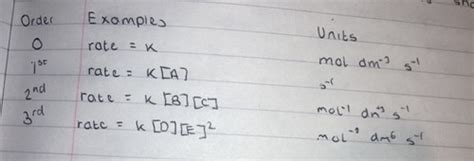 Order Examples Units
0 rate = k mol dm⁻³ s⁻¹
1st rate = k[A] s⁻¹
2nd rate = k [B][C] mol⁻¹ dm³ s⁻¹
3rd rate = k [D][E]² mol⁻² dm⁶ s⁻¹